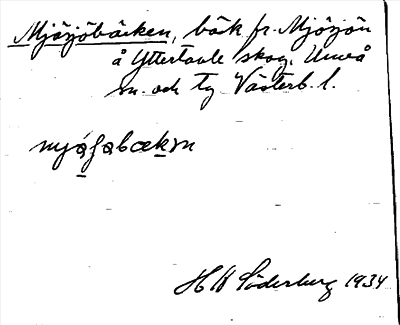 Mjösjöbäcken, bäck fr. Mjösjön
å Yttertavle skog, Umeå
sn. och tg Västerb. l.
Söderberg 1934